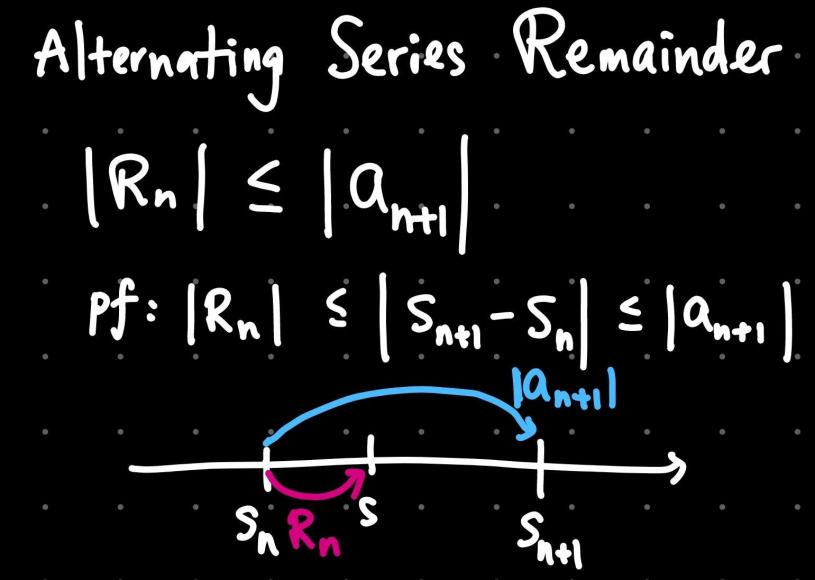 Alternating Series Remainder
|Rₙ| ≤ |aₙ₊₁|
pf: |Rₙ| ≤ |Sₙ₊₁ - Sₙ| ≤ |aₙ₊₁|
|aₙ₊₁|
Sₙ Rₙ S Sₙ₊₁